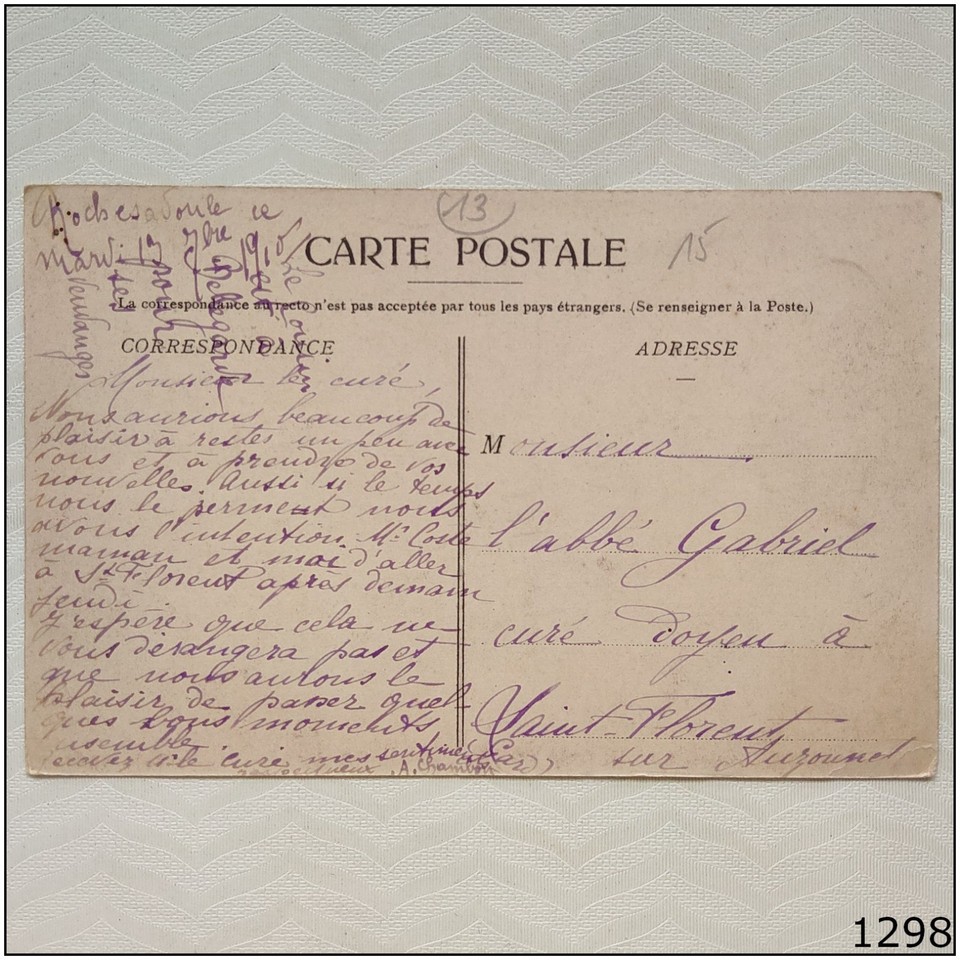 Rochesadoule ce
mardi 17 7bre 1918
13
15
CARTE POSTALE
La correspondance au recto n'est pas acceptée par tous les pays étrangers. (Se renseigner à la Poste.)
CORRESPONDANCE
Monsieur le curé,
Nous aurions beaucoup de
plaisir à rester un peu avec
vous et à prendre de vos
nouvelles. Aussi si le temps
nous le permet nous
avons l'intention Mr Coste
maman et moi d'aller
à St Florent après demain
jeudi.
J'espère que cela ne
vous dérangera pas et
que nous aurons le
plaisir de passer quel-
ques bons moments
ensemble.
recevez Mr le curé mes sentiments
respectueux A. Chambon
vendanges
les
pour
Bellegarde
ADRESSE
Monsieur
l'abbé Gabriel
curé Doyen à
Saint-Florent
sur Auzonnet
(Gard)
1298